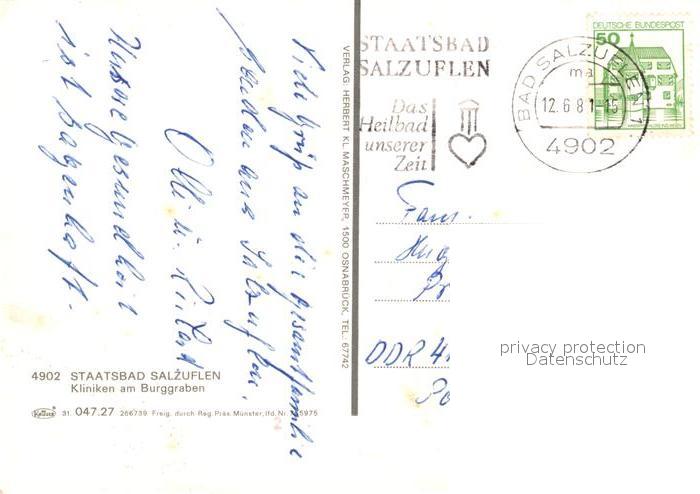 Viele Grüße an die Gesamtfamilie
senden aus Salzuflen,
Olli u. Richard
Unsere Gesundheit
ist sagenhaft.
4902 STAATSBAD SALZUFLEN
Kliniken am Burggraben
31. 047.27 266739 Freig. durch Reg. Präs. Münster, lfd. Nr.
VERLAG: HERBERT KL. MASCHMEYER, 1500 OSNABRÜCK, TEL.: 67742
STAATSBAD
SALZUFLEN
Das
Heilbad
unserer
Zeit
BAD SALZUFLEN 1
ma
12.6.81-15
4902
DEUTSCHE BUNDESPOST
50
Fam.
DDR
privacy protection
Datenschutz